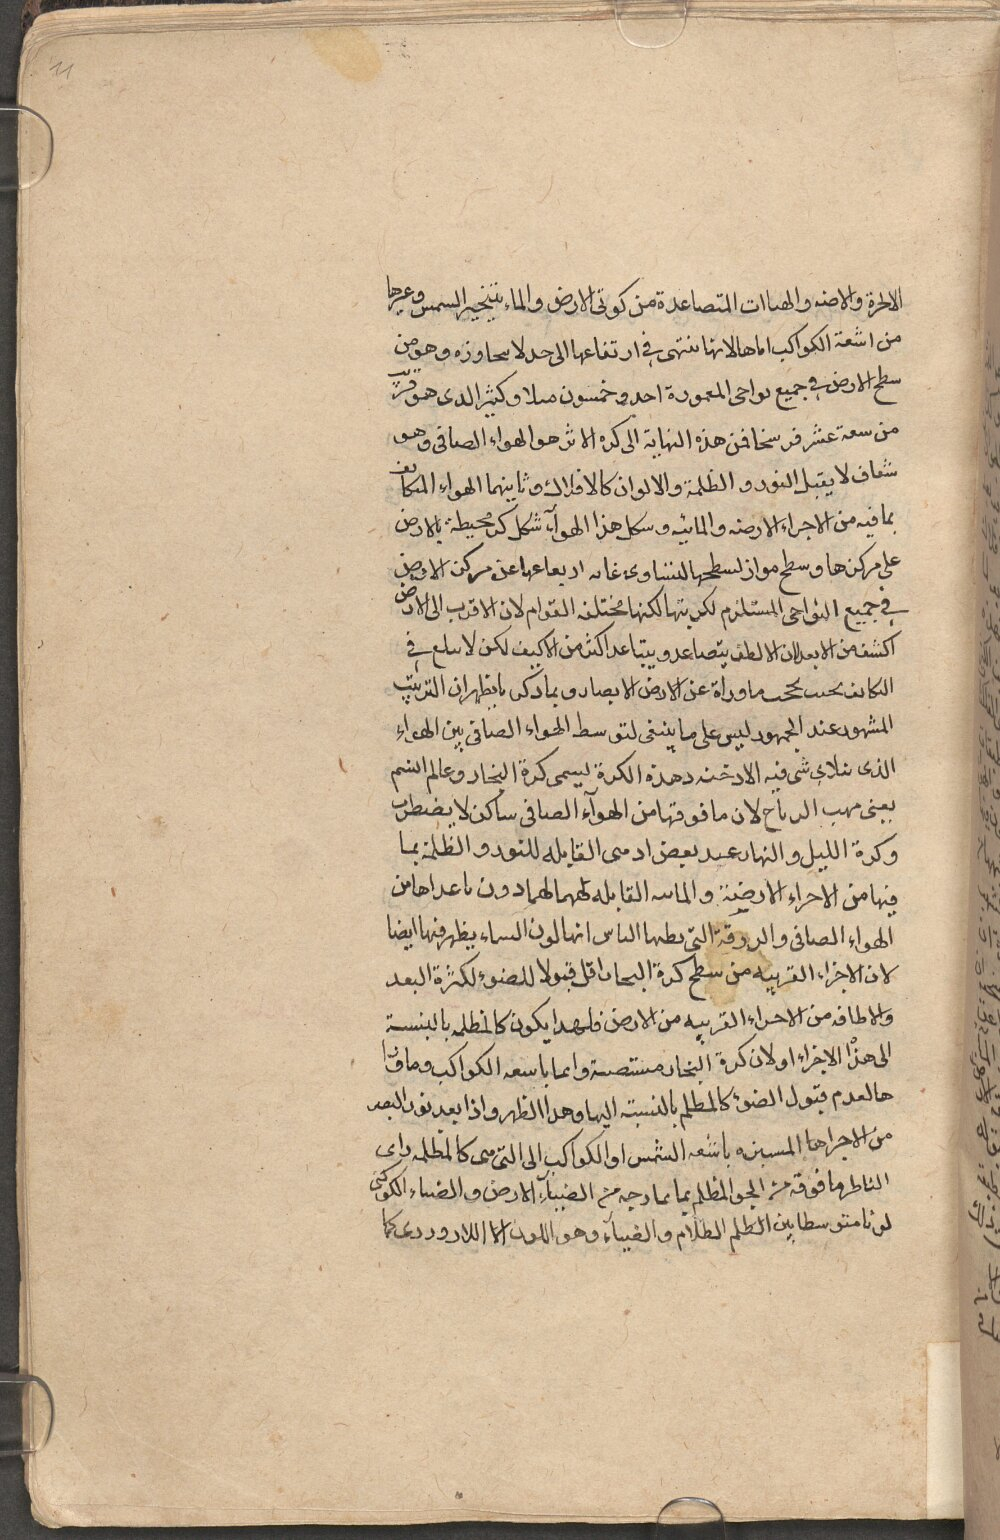 11
الابخرة والادخنه والهباات المتصاعدة من كوتى الارض والماء بتبخير السمس وعيرها
من اشعة الكواكب اماها لانها ينتهى فى ارتفاعها الى حد لا يتحاوزه وهو من
سطح الارض فى جميع نواحى المعمورة احد و خمسون ميلا وكثير الدى هو قريب
من سعة عشر فرسخا فمن هذه النهاية الى كره الاثير هو الهواء الصافى وهو
شفاف لا يقبل النور و الظلمة والالوان كالافلاك وثانيهما الهواء المتكاثف
بما فيه من الاجراء الارضيه والمائيه وسكل هذا الهوآء شكل كرة محيطة بالارض
على مركزها وسطح مواز لسطحها لتساوى غايه اربفاعها عن مركز الارض
فى جميع النواحى المستلزم لكريتها لكنها مختلفه القوام لان الاقرب الى الارض
اكثف من الابعد لان الالطف يتصاعد ويتباعد اكثر من الاكيف لكن لا يبلغ فى
التكاثف بحيث يححب ماوراه عن الارض الابصار وبما ذكر نا يظهر ان الترتيب
المشهود عند الجمهور ليس على ما ينبغى لتوسط الهواء الصافى بين الهواء
الذى يتلاشى فيه الادخنه وهذه الكرة ليسمى كرة البخار وعالم النسيم
يعنى مهب الرياح لان ما فوقها من الهوآء الصافى ساكن لا يضطرب
وكرة الليل والنهار عند بعض اذ هى القابله للنور و الظلمة بما
فيها من الاجراء الارضية والمائيه القابله لهما لهما دون ما عداها من
الهواء الصافى والزرقة التى يظنها الناس انها لون السماء يظهر فيها ايضا
لان الاجزاء القريبه من سطح كرة البخار اقل قبولا للضوء لكثرة البعد
واللطافه من الاجراء القريبه من الارض فلهذا يكون كالمظلمه بالنسبة
الى هذه الاجزاء اولان كرة البخار مستضيئة دايما باسعه الكواكب وماورا
ها لعدم قبول الضوء كالمطلم بالنسبته اليها وهدا اظهر واذا نفد نور البصر
من الاجرا هما المستنيره باشعه الشمس او الكواكب الى التى هى كالمظلمه راى
الناظر ما فوقه من الجو المظلم بما يمازجه من الضيآء الارض و الضياء الكوكبى
لونا متوسطا بين الظلم الظلام والضيآء وهو اللون الا اللازوردى كما